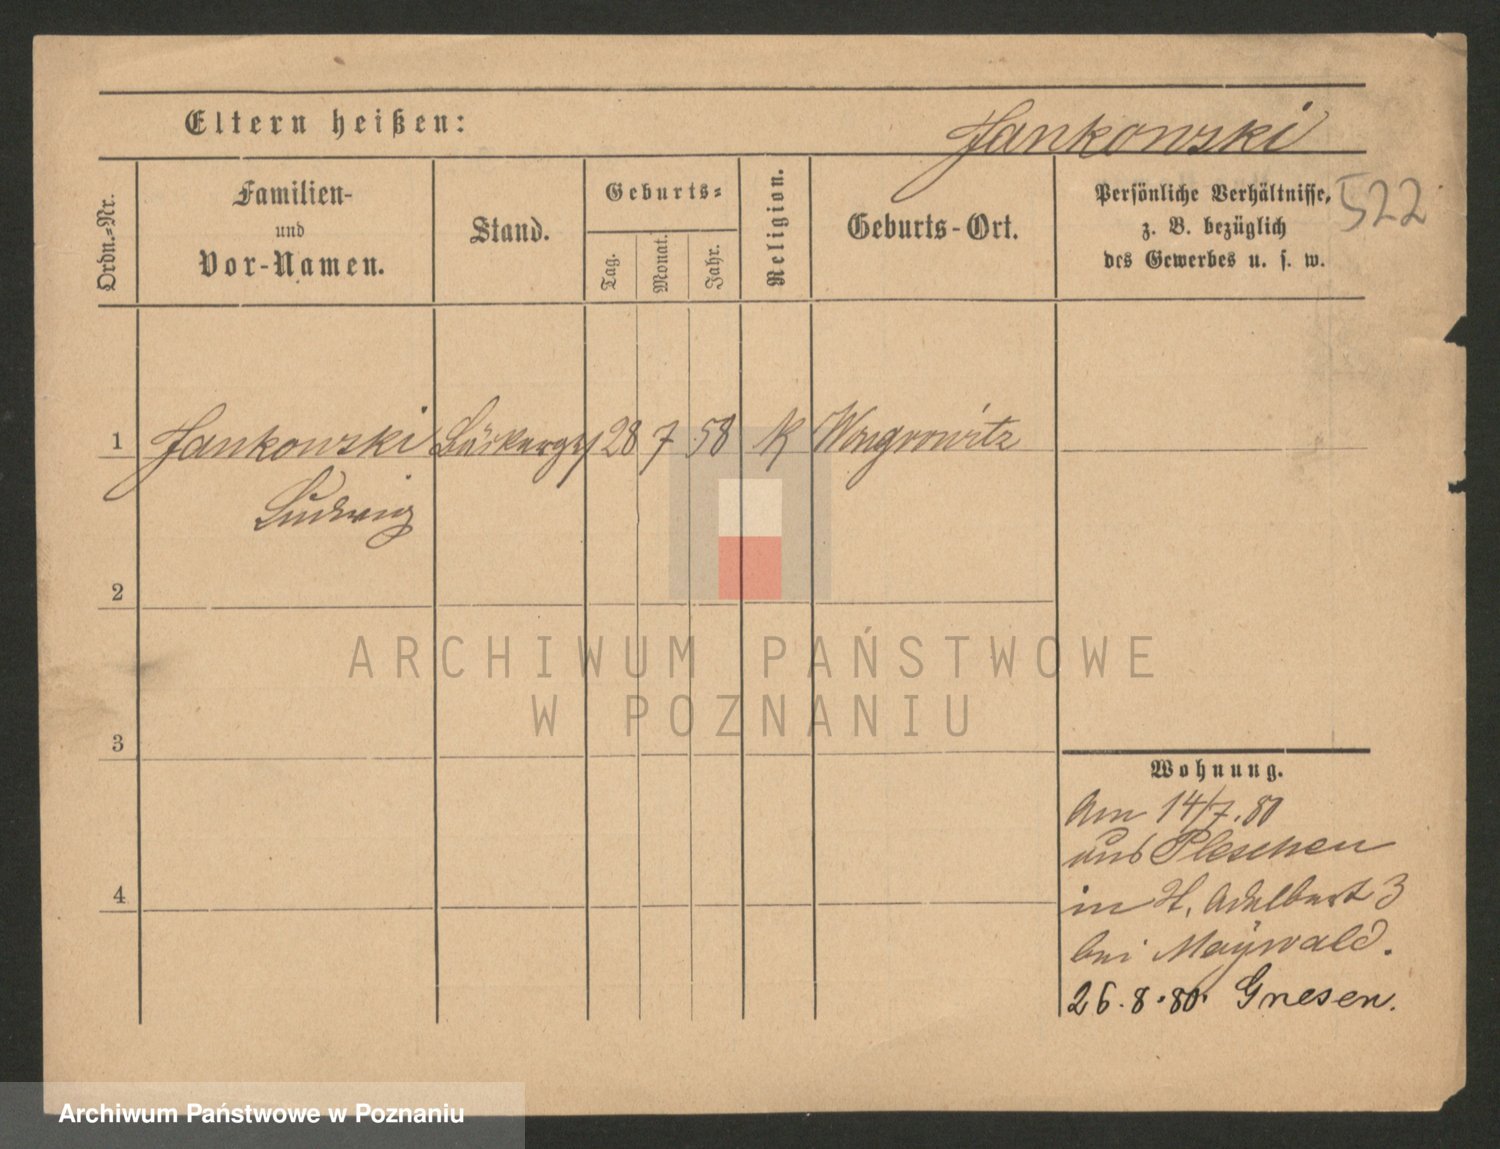 Eltern heißen:
Jankowski
Ordn.-Nr.
Familien-
und
Vor-Namen.
Stand.
Geburts-
Tag.
Monat.
Jahr.
Religion.
Geburts-Ort.
Persönliche Verhältnisse,
z. B. bezüglich
des Gewerbes u. s. w.
522
1 Jankowski 28 7 58 K Wongrowitz
Ludwig
2
3
4
Wohnung.
Am 14/7.80
aus Pleschen
in St. Adalbert 3
bei Maywald.
26.8.80. Gnesen.
ARCHIWUM PAŃSTWOWE
W POZNANIU
Archiwum Państwowe w Poznaniu